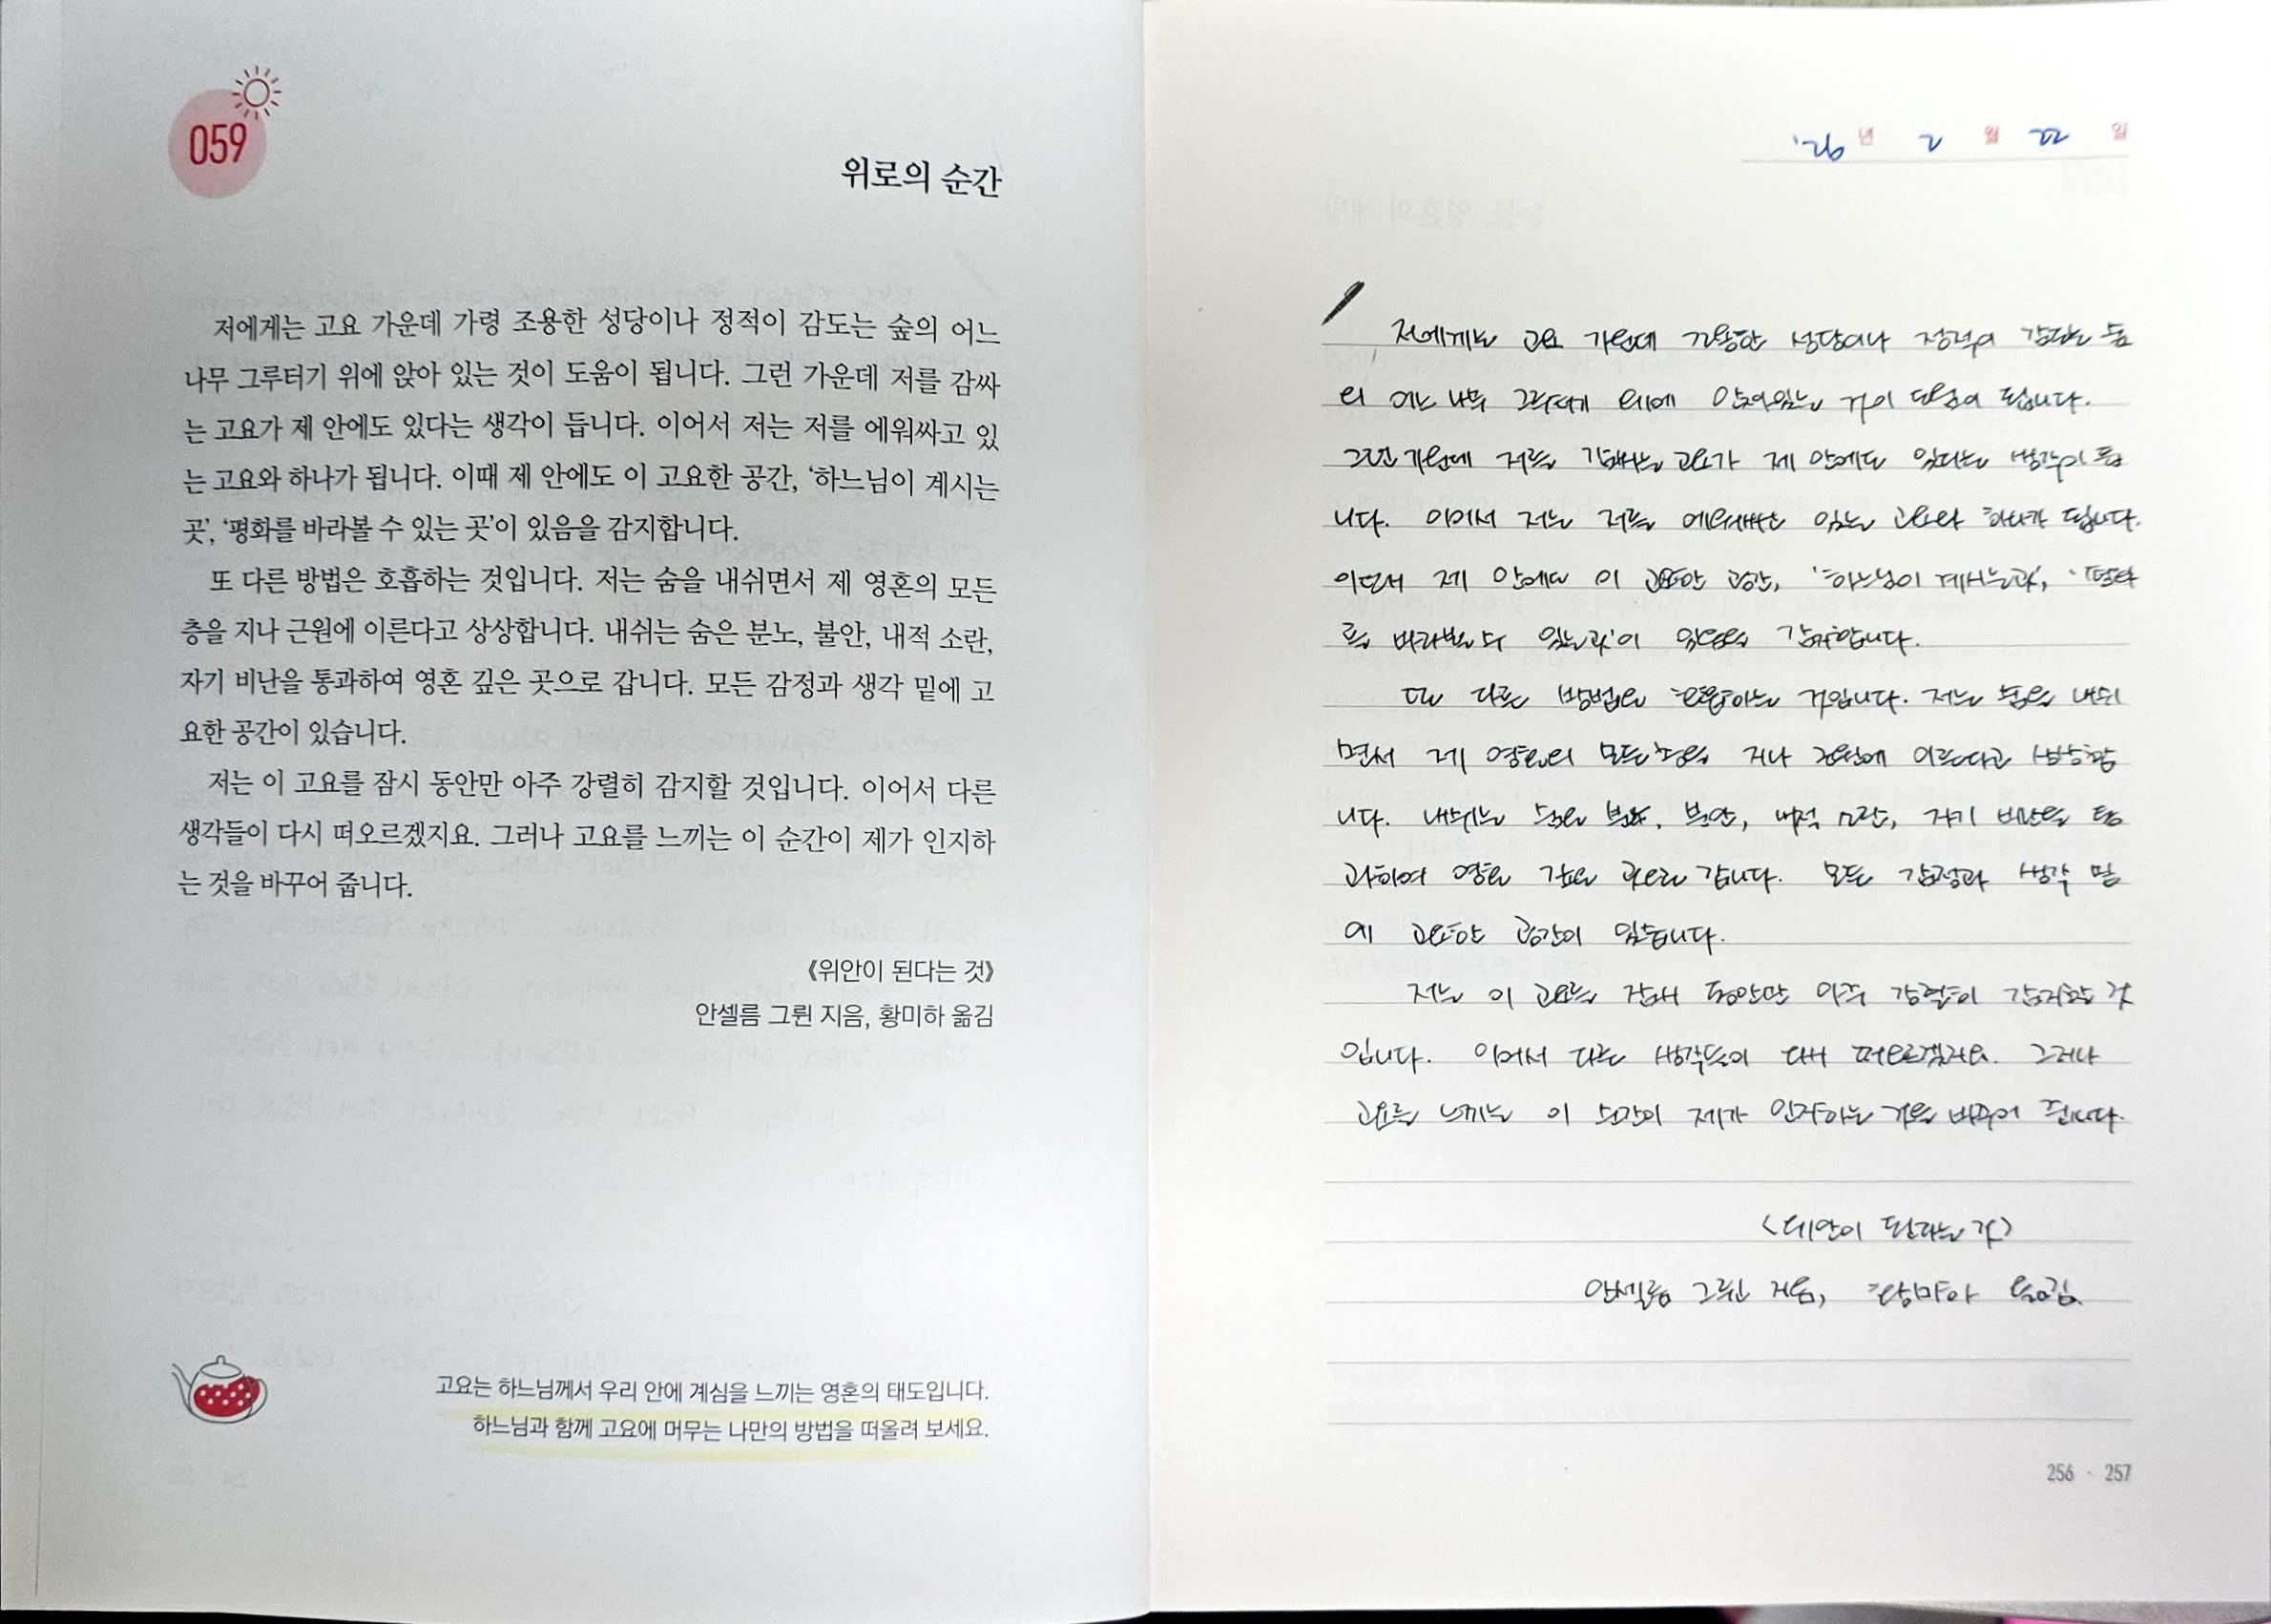 059
위로의 순간
저에게는 고요 가운데 가령 조용한 성당이나 정적이 감도는 숲의 어느
나무 그루터기 위에 앉아 있는 것이 도움이 됩니다. 그런 가운데 저를 감싸
는 고요가 제 안에도 있다는 생각이 듭니다. 이어서 저는 저를 에워싸고 있
는 고요와 하나가 됩니다. 이때 제 안에도 이 고요한 공간, ‘하느님이 계시는
곳’, ‘평화를 바라볼 수 있는 곳’이 있음을 감지합니다.
또 다른 방법은 호흡하는 것입니다. 저는 숨을 내쉬면서 제 영혼의 모든
층을 지나 근원에 이른다고 상상합니다. 내쉬는 숨은 분노, 불안, 내적 소란,
자기 비난을 통과하여 영혼 깊은 곳으로 갑니다. 모든 감정과 생각 밑에 고
요한 공간이 있습니다.
저는 이 고요를 잠시 동안만 아주 강렬히 감지할 것입니다. 이어서 다른
생각들이 다시 떠오르겠지요. 그러나 고요를 느끼는 이 순간이 제가 인지하
는 것을 바꾸어 줍니다.
《위안이 된다는 것》
안셀름 그륀 지음, 황미하 옮김
고요는 하느님께서 우리 안에 계심을 느끼는 영혼의 태도입니다.
하느님과 함께 고요에 머무는 나만의 방법을 떠올려 보세요.
'26년 2월 22일
저에게는 고요 가운데 조용한 성당이나 정적이 감도는 숲
의 어느 나무 그루터기 위에 앉아있는 것이 도움이 됩니다.
그런 가운데 저를 감싸는 고요가 제 안에도 있다는 생각이 듭
니다. 이어서 저는 저를 에워싸고 있는 고요와 하나가 됩니다.
제 안에도 이 고요한 공간, '하느님이 계시는곳', '평화
를 바라볼 수 있는곳'이 있음을 감지합니다.
또 다른 방법은 호흡하는 것입니다. 저는 숨을 내쉬
면서 제 영혼의 모든 층을 지나 근원에 이른다고 상상합
니다. 내쉬는 숨은 분노, 불안, 내적 소란, 자기 비난을 통
과하여 영혼 깊은 곳으로 갑니다. 모든 감정과 생각 밑
에 고요한 공간이 있습니다.
저는 이 고요를 잠시 동안만 아주 강렬히 감지할 것
입니다. 이어서 다른 생각들이 다시 떠오르겠지요. 그러나
고요를 느끼는 이 순간이 제가 인지하는 것을 바꾸어 줍니다.
<위안이 된다는 것>
안셀름 그륀 지음, 황미하 옮김
256 · 257